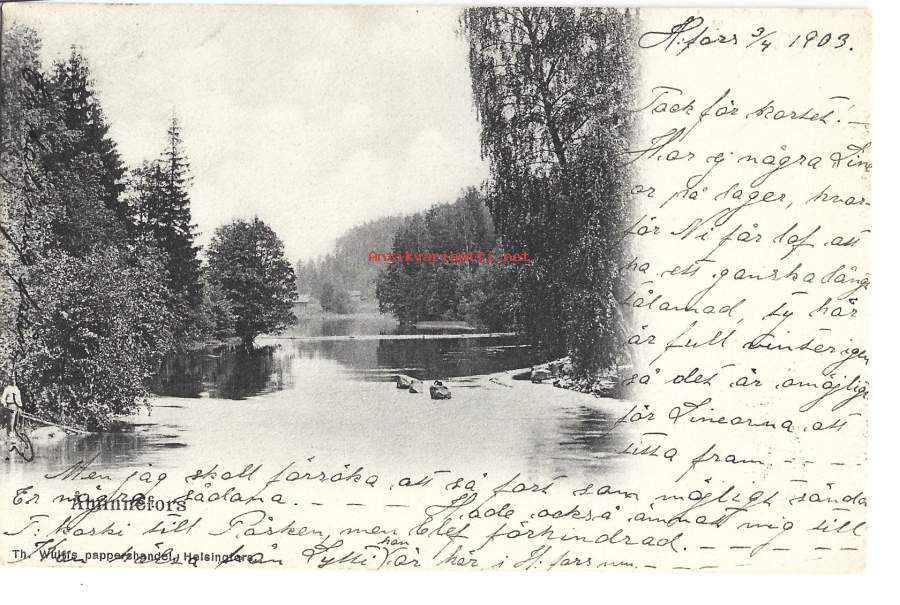 H:fors 3/4 1903.
Tack för kortet! -
Har ej några Sine
or på lager, hvar
för Ni får lof att
ha ett ganska lång
tålamod, ty här
är full vinter igen
så det är omöjlig
för Sineorna att
titta fram - - - -
Men jag skall försöka att så fort som möjligt sända
Er några sådana. - - - - Hade också ämnat mig till
T:koski till Påsken, men blef förhindrad. - - - - -
från Lytti (han är här i H:fors - - - -
Antikvariaatti.net
Åminnefors
Th. Wulffs pappershandel, Helsingfors.